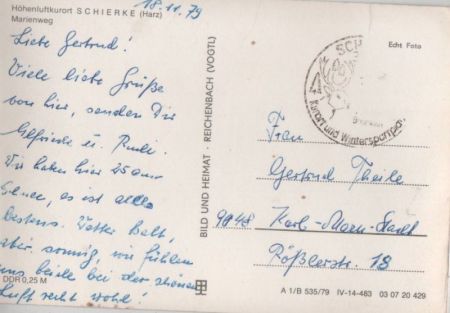 Höhenluftkurort SCHIERKE (Harz)
Marienweg
18.11.79
Liebe Gertrud!
Viele liebe Grüße
von hier, senden Dir
Elfriede u. Rudi.
Wir haben hier 25 cm
Schnee, es ist alles
bestens. Wetter kalt,
aber sonnig, wir fühlen
uns beide bei der schönen
Luft recht wohl!
DDR 0,25 M
BILD UND HEIMAT · REICHENBACH (VOGTL)
Echt Foto
SCH
Kurort und Wintersportplatz
Frau
Gertrud Theile
9048 Karl-Marx-Stadt
Rößlerstr. 18
A 1/B 535/79 IV-14-483 03 07 20 429